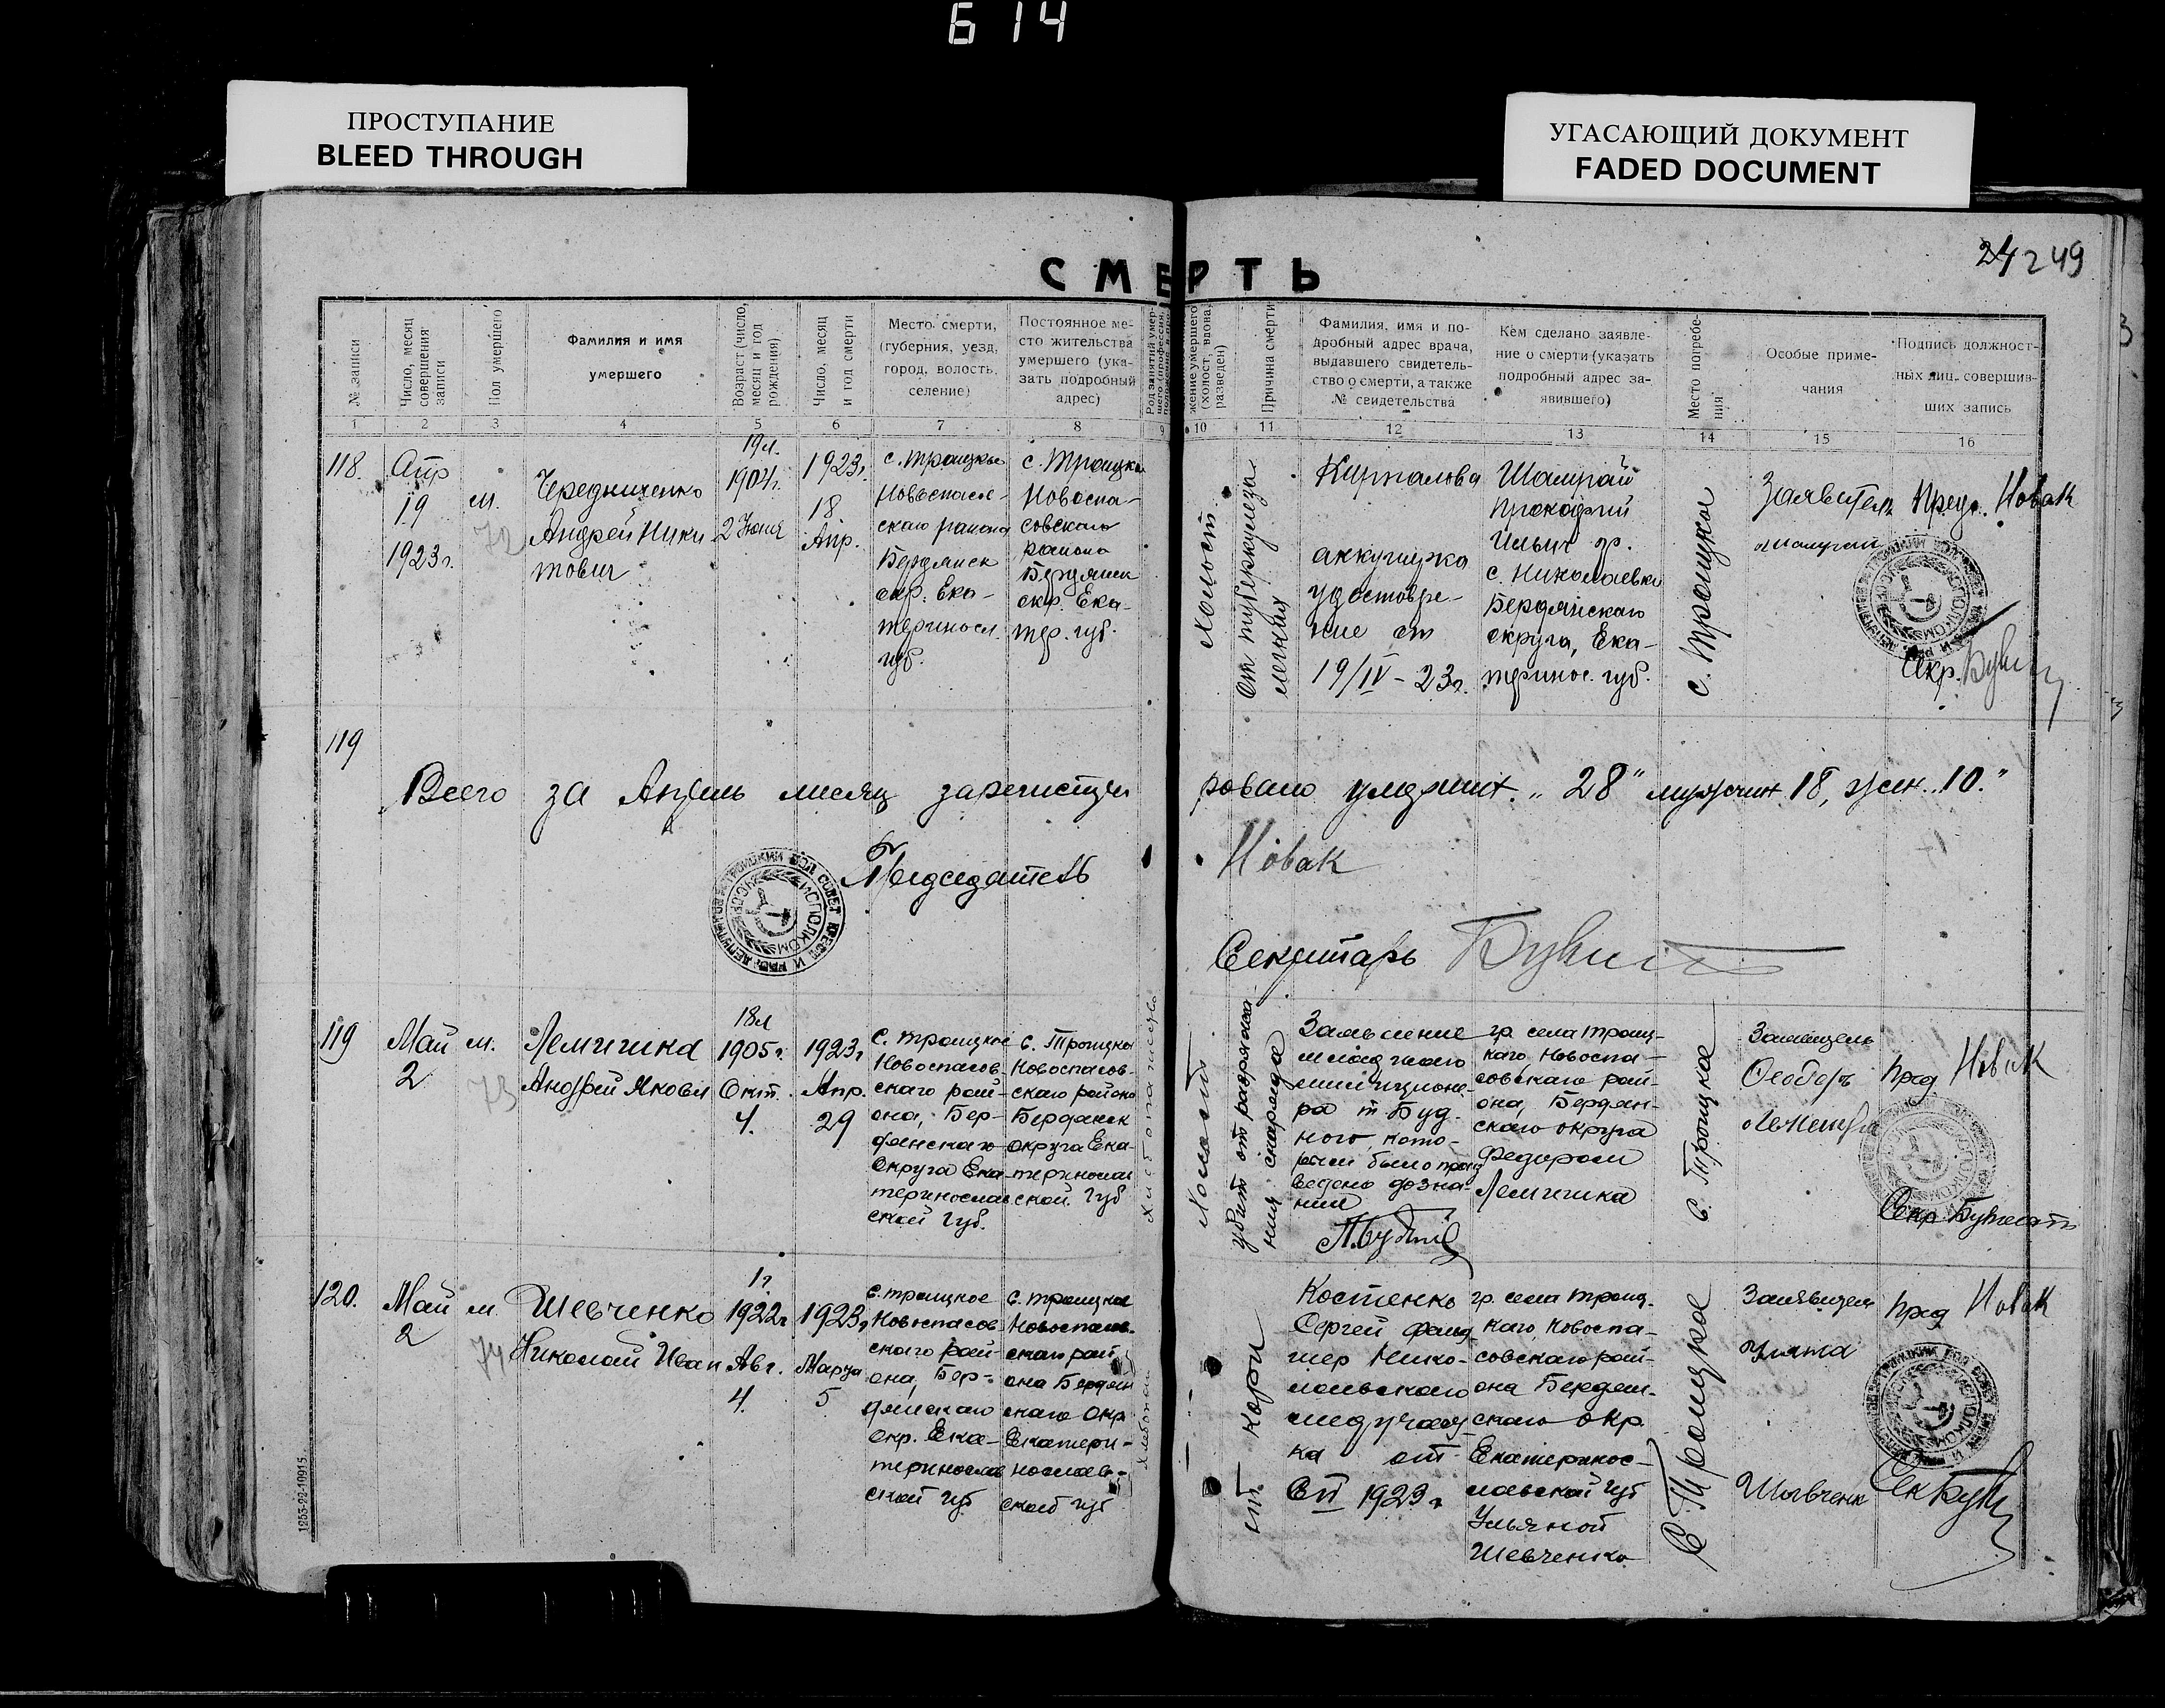 614
ПРОСТУПАНИЕ
BLEED THROUGH
УГАСАЮЩИЙ ДОКУМЕНТ
FADED DOCUMENT
24 249
СМЕРТЬ
№ записи
Число, месяц совершения записи
Пол умершего
Фамилия и имя
умершего
Возраст (число, месяц и год рождения)
Число, месяц и год смерти
Место смерти,
(губерния, уезд,
город, волость,
селение)
Постоянное ме-
сто жительства
умершего (ука-
зать подробный
адрес)
Род занятий умер-
жение умершего
(холост, вдова,
разведен)
Причина смерти
Фамилия, имя и по-
дробный адрес врача,
выдавшего свидетель-
ство о смерти, а также
№ свидетельства
Кем сделано заявле-
ние о смерти (указать
подробный адрес за-
явившего)
Место погребе-
ния
Особые приме-
чания
Подпись должност-
ных лиц, совершив-
ших запись
1 2 3 4 5 6 7 8 9 10 11 12 13 14 15 16
118.
Апр
19
1923г.
м.
72
Чередниченко
Андрей Ники
тович
19л.
1904г.
2 Июня
1923г.
18
Апр.
с. Троицкое
Новоспасов-
скаго района
Бердянск
окр. Ека-
териносл.
губ.
с. Троицкое
Новоспа-
совскаго
района
Бердянск
окр. Ека-
тер. губ.
Холост
От туберкулеза
легких
Курталова
аккушерка
удостовре-
ние от
19/IV - 23г.
Шамрай
Прокофий
Ильич гр.
с. Николаевки
Бердянскаго
округа, Ека-
теринос. губ.
с. Троицкое
Заявитель
Пред. Новак
Секр.
119
Всего за Апрель месяц зарегистри
ровано умерших „28" мужчин 18, жен. 10."
Председатель
Новак
Секретарь
119
Май
2
м.
73
Лемишка
Андрей Яковл
18л
1905г.
Окт.
4.
1923г.
Апр.
29
с. Троицкое
Новоспасов
скаго рай-
она, Бер-
дянскаго
Округа Ека-
теринослав
ской Губ.
с. Троицкое
Новоспасов-
скаго района
Бердянск
округа Ека-
теринослав
ской Губ
Хлебопашество
Холост
убит от разряжа
ния снаряда
Заявление
младшаго
милиционе-
ра т. Буд-
ного, кото-
рым было прои
ведено дозна-
ние
гр. села Троиц-
каго, Новоспа-
совскаго рай-
она, Бердян-
скаго округа
Федором
Лемишка
с. Троицкое
Заявитель
Феодоръ
Пред Новак
Секр
120.
Май
2
м.
74
Шевченко
Николай Иван
1г.
1922г
Авг.
4.
1923г.
Марта
5
с. Троицкое
Новоспасов
скаго рай-
она, Бер-
дянскаго
окр. Ека-
теринослав
ской губ
с. Троицкое
Новоспасов-
скаго рай
она Бердян
скаго Окр
Екатери-
нослав-
ской губ
от кори
Костенко
Сергей фельд
шер Нико-
лаевскаго
медучаст-
ка от
1923г
гр. села Троиц-
каго, Новоспа-
совскаго рай-
она Бердян-
скаго окр.
Екатеринос-
лавской губ
Ульяной
Шевченко
С. Троицкое
Заявител
Уляна
Шевченк
Пред Новак
Сек
1255-22-10915.